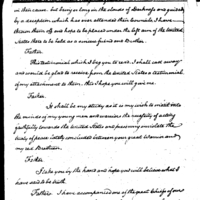 in this cause, but being so long in the clouds of Darkness and guided
by a deception which has ever attended their Councils I have
thrown them off and hope to be placed under the left arm of the United
States there to be held as a sincere friend and Brother.
Father
This testimonial which I beg you to read. I shall cast away
and would be glad to receive from the United States a testimonial
of my attachment to them; this I hope you will give me.
Father
It shall be my study as it is my wish to
the minds of my young men and the necessity of acting
faithfully towards the United States and preserving inviolate the
treaty of peace between your great Women and
my red Brethren.
Father
I take you by the hand and hope you will believe what I
have said to be truth.
Father I have accompanied one of the great Chiefs of our